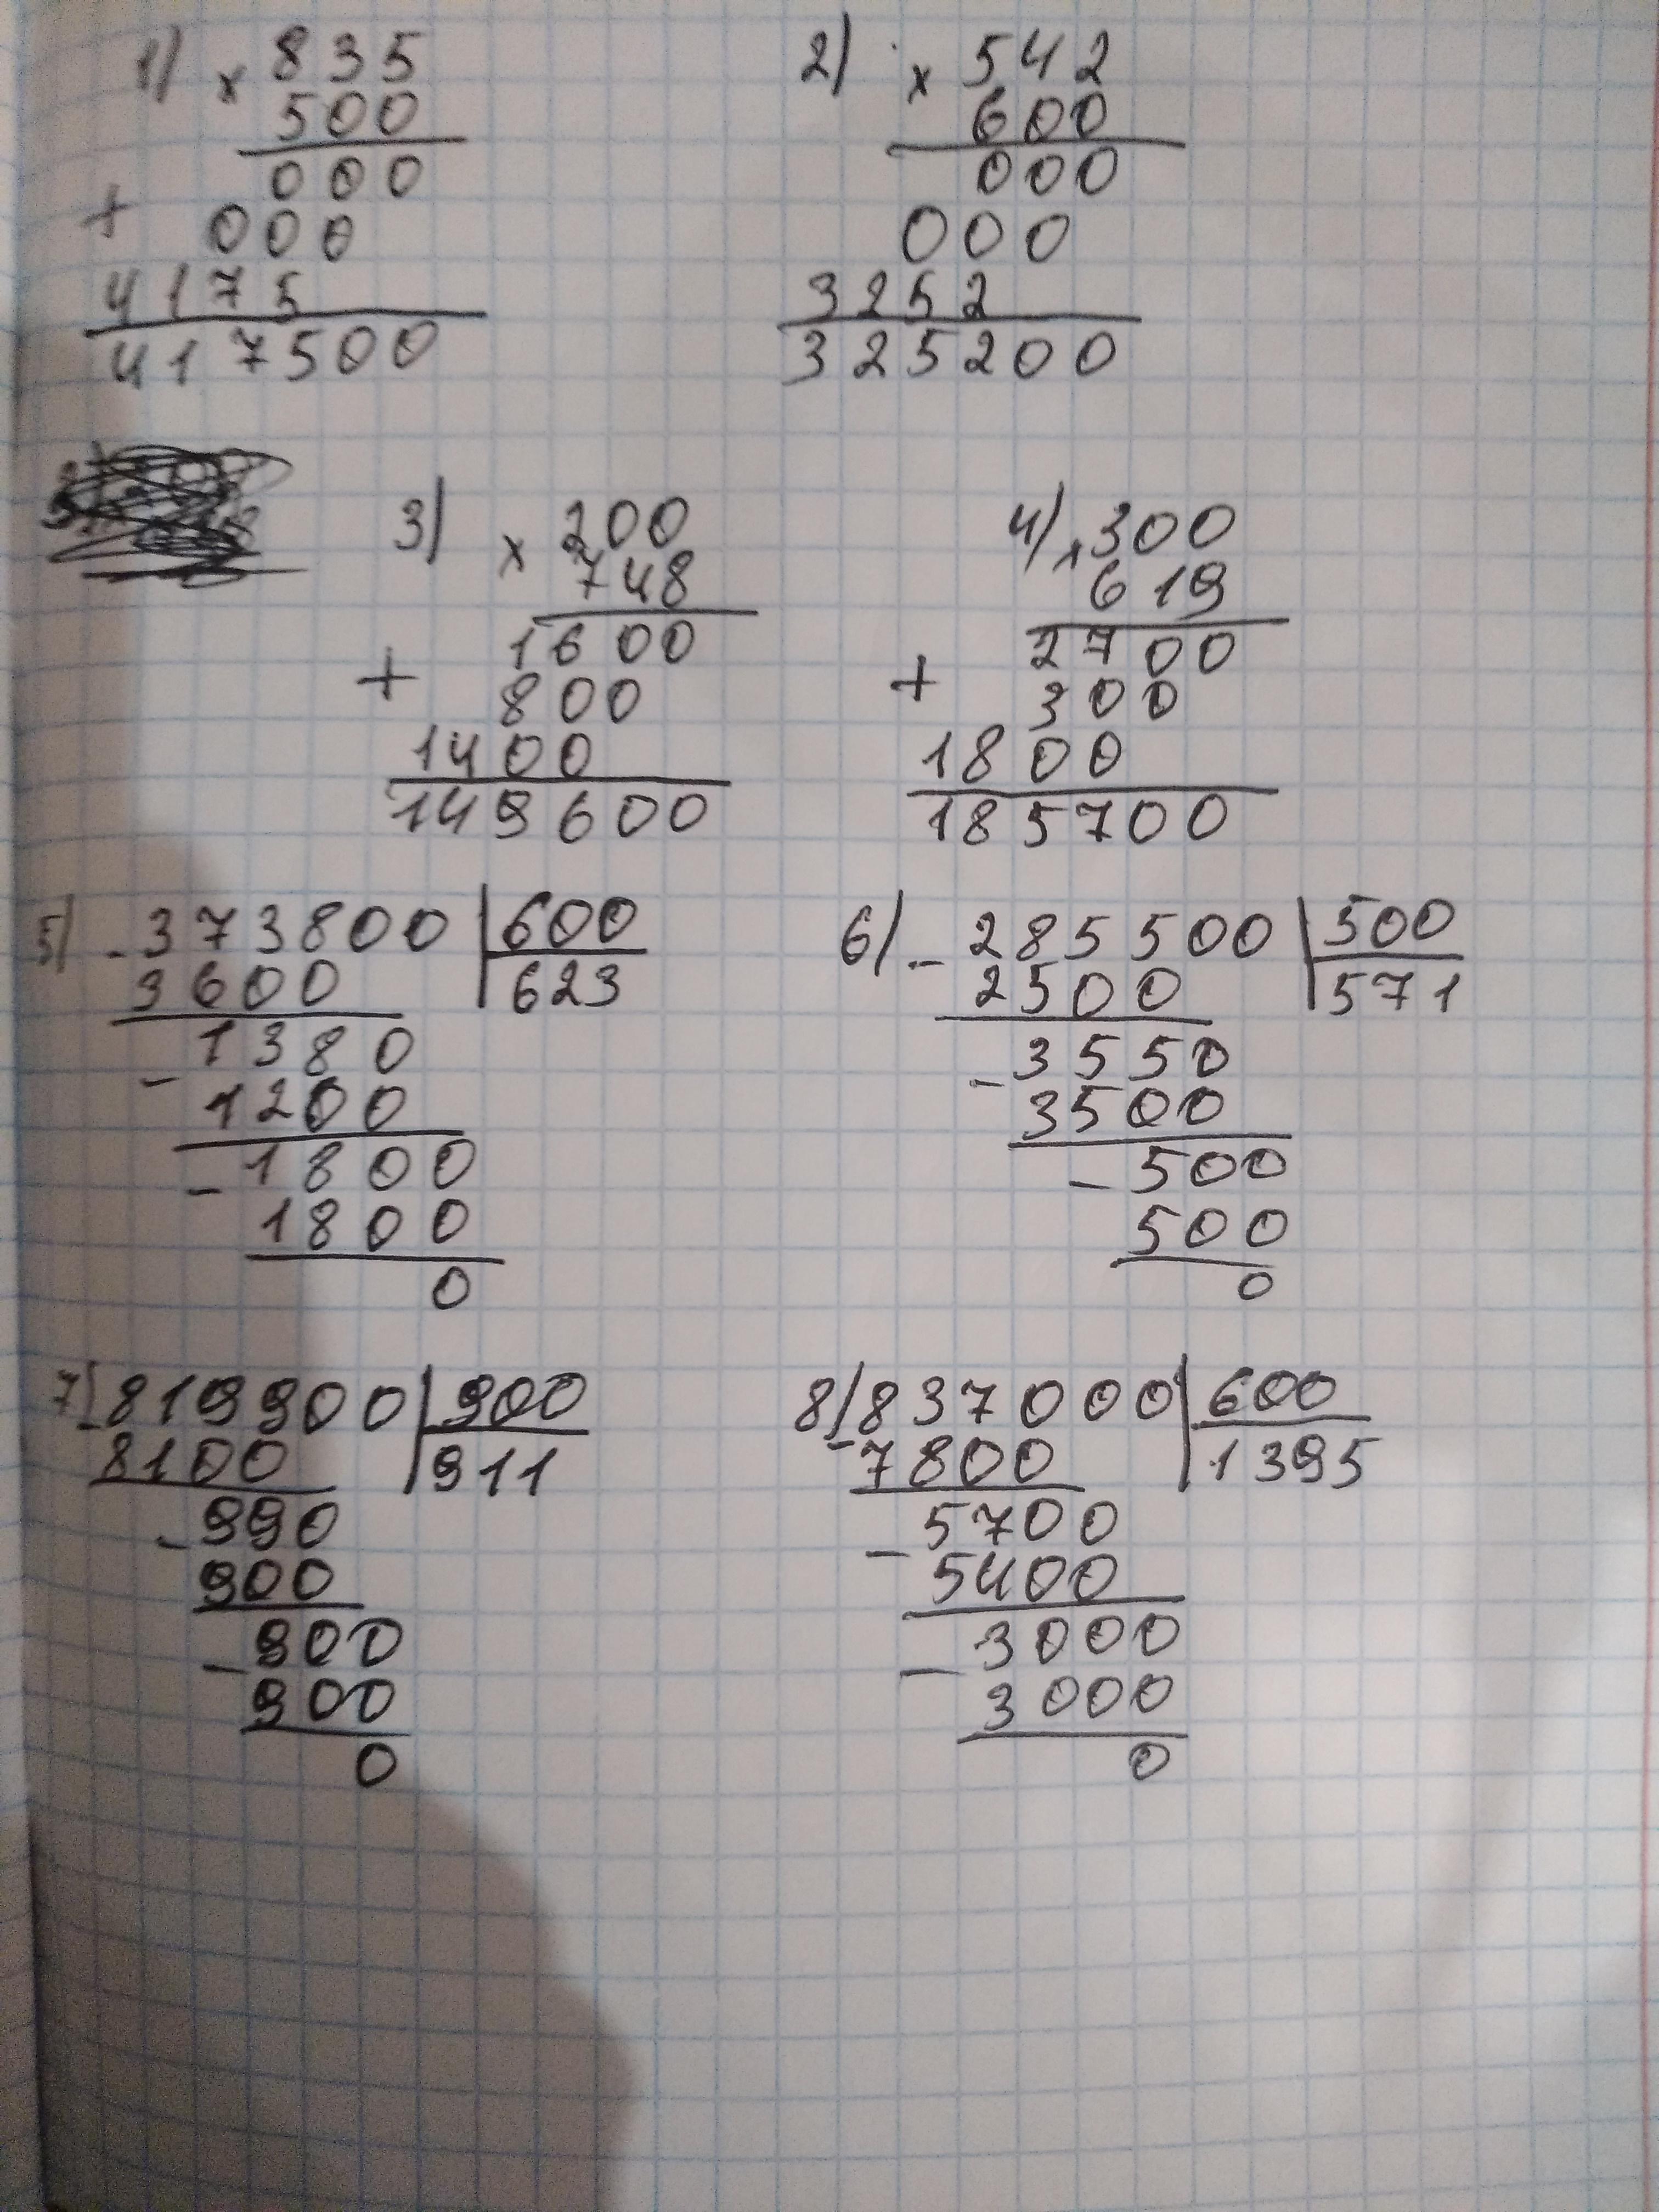 1) × 835
500
000
+ 000
4175
417500
2) × 542
600
000
000
3252
325200
3) × 200
748
1600
+ 800
1400
149600
4) × 300
619
2700
+ 300
1800
185700
5) - 373800 | 600
3600 | 623
- 1380
1200
- 1800
1800
0
6) - 285500 | 500
2500 | 571
- 3550
3500
- 500
500
0
7) - 819900 | 900
8100 | 911
- 990
900
- 900
900
0
8) - 837000 | 600
7800 | 1395
- 5700
5400
- 3000
3000
0